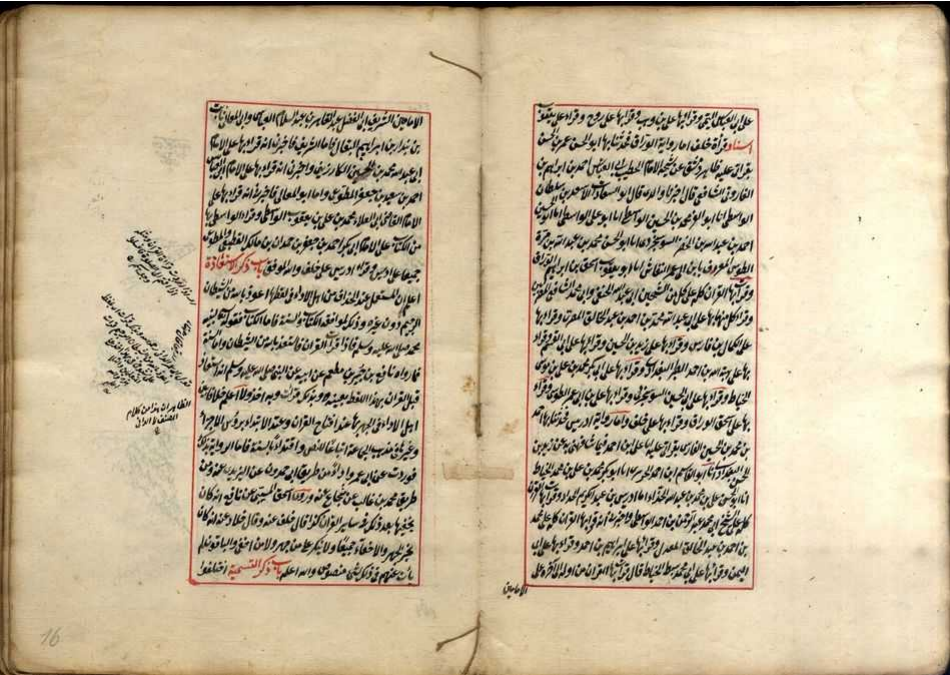 على ابى العباس التيمى وقرا بها على بن وهب وقرا بها على روح وقرا على يعقوب
اسناد قرأة خلف اما رواية الوراق فحدثنا بها ابو الحسن عمر بن الحسن
بقرائتى عليه ظاهر دمشق عن شيخه الامام الخطيب ابى العباس احمد بن ابراهيم بن
الفاروثى الشافعى قال اخبرنا والده قال ابو السعادات الاسعد بن سلطان
الواسطى انا ابو محمد بن الحسين الواسطى انا ابو على الواسطى انا ابو
احمد بن عبد الله بن الخضر السوسنجردى انا ابو الحسن محمد بن عبد الله بن مرة
الطوسى المعروف بابن ابى عمر النقاش انا ابو يعقوب اسحق بن ابراهيم الوراق
وقرأت بها القران كله على كل من الشيخين ابى عبد الله الحنفى وابى محمد الشافعى
وقرا كل منهما بها على ابى عبد الله محمد بن احمد بن عبد الخالق المعدل وقرا بها
على الكمال بن فارس وقرا بها على زيد بن الحسن وقرا بها على ابى القسم وقرا
بها على هبة الله بن احمد الطبر البغدادى وقرا بها على ابى بكر محمد بن على بن محمد
الخياط وقرا بها على ابى الحسين السوسنجردى وقرا بها على بن ابى عمر الطوسى وقرا
بها على اسحق الوراق وقرا بها على خلف واما رواية ادريس فحدثنا بها احمد
بن محمد بن الحسين الفارسى بقراتى عليه انا على بن احمد فيما شافهنى به عن زيد بن
الحسن البغدادى انا ابو القاسم ابن احمد الحريرى انا ابو بكر محمد بن على بن محمد الخياط
انا ابو الحسن على بن محمد بن عبد الله الحذاء انا ادريس بن عبد الكريم الحداد وقرات بها القران
كله على الشيخ ابى محمد عبد الرحمن بن احمد الواسطى واخبرنى انه قرا بها القران كله على محمد
بن احمد بن عبد الخالق المعدل وقرا بها على ابراهيم بن احمد وقرا بها على ابى
اليمن وقرا بها على ابى محمد سبط الخياط قال قرات بها القران من اوله الى اخره على
الامامين
الامامين الشريف ابى الفضل عبد القاهر بن عبد السلام العباسى وابى المعالى ثابت
بن بندار بن ابراهيم البقال فاما الشريف فاخبرنى انه قرا بها على الامام
ابى عبد الله محمد بن الحسين الكارزينى واخبره انه قرا بها على الامام ابى العباس
احمد بن سعيد بن جعفر المطوعى واما ابو المعالى فاخبرنى انه قرا بها على
الامام القاضى ابى العلاء محمد بن على بن يعقوب الواسطى وقرا الواسطى بها
من الكتاب على الامام ابى بكر احمد بن جعفر بن حمدان بن مالك القطيعى والمطوعى
جميعا على ادريس وقرا ادريس على خلف والله الموفق باب ذكر الاستعاذة
اعلم ان المستعمل عند الحذاق من اهل الاداء فى لفظها اعوذ بالله من الشيطان
الرجيم دون غيره وذلك لموافقة الكتاب والسنة فاما الكتاب فقوله تعالى لنبيه
محمد صلى الله عليه وسلم فاذا قرأت القران فاستعذ بالله من الشيطان واما السنة
فما رواه نافع بن جبير بن مطعم عن ابيه عن النبى صلى الله عليه وسلم انه استعاذ
قبل القران بهذا اللفظ بعينه وبذلك قرات وبه اخذ ولا اعلم خلافا بين
اهل الاداء فى الجهر بها عند افتتاح القران وعند الابتداء برؤس الاجزاء
وغيرها فى مذهب الجماعة اتباعا للنص واقتداء بالسنة فاما الرواية بذلك
فوردت عن ابى عمرو اداء من طريق ابى حمدون عن اليزيدى عنه ومن
طريق محمد بن غالب عن شجاع عنه وروى اسحق المسيبى عن نافع انه كان
يخفيها بعد ذلك فى ساير القران كذا قال خلف عنه وقال خلاد عنه انه كان
يجيز الجهر والاخفاء جميعا ولا ينكر على من جهر ولا من اخفى والباقون لم
يات عنهم فى ذلك شئ منصوص والله اعلم باب ذكر التسمية اختلفوا
الظاهر ان هذا من كلام
المصنف لا الدانى
16